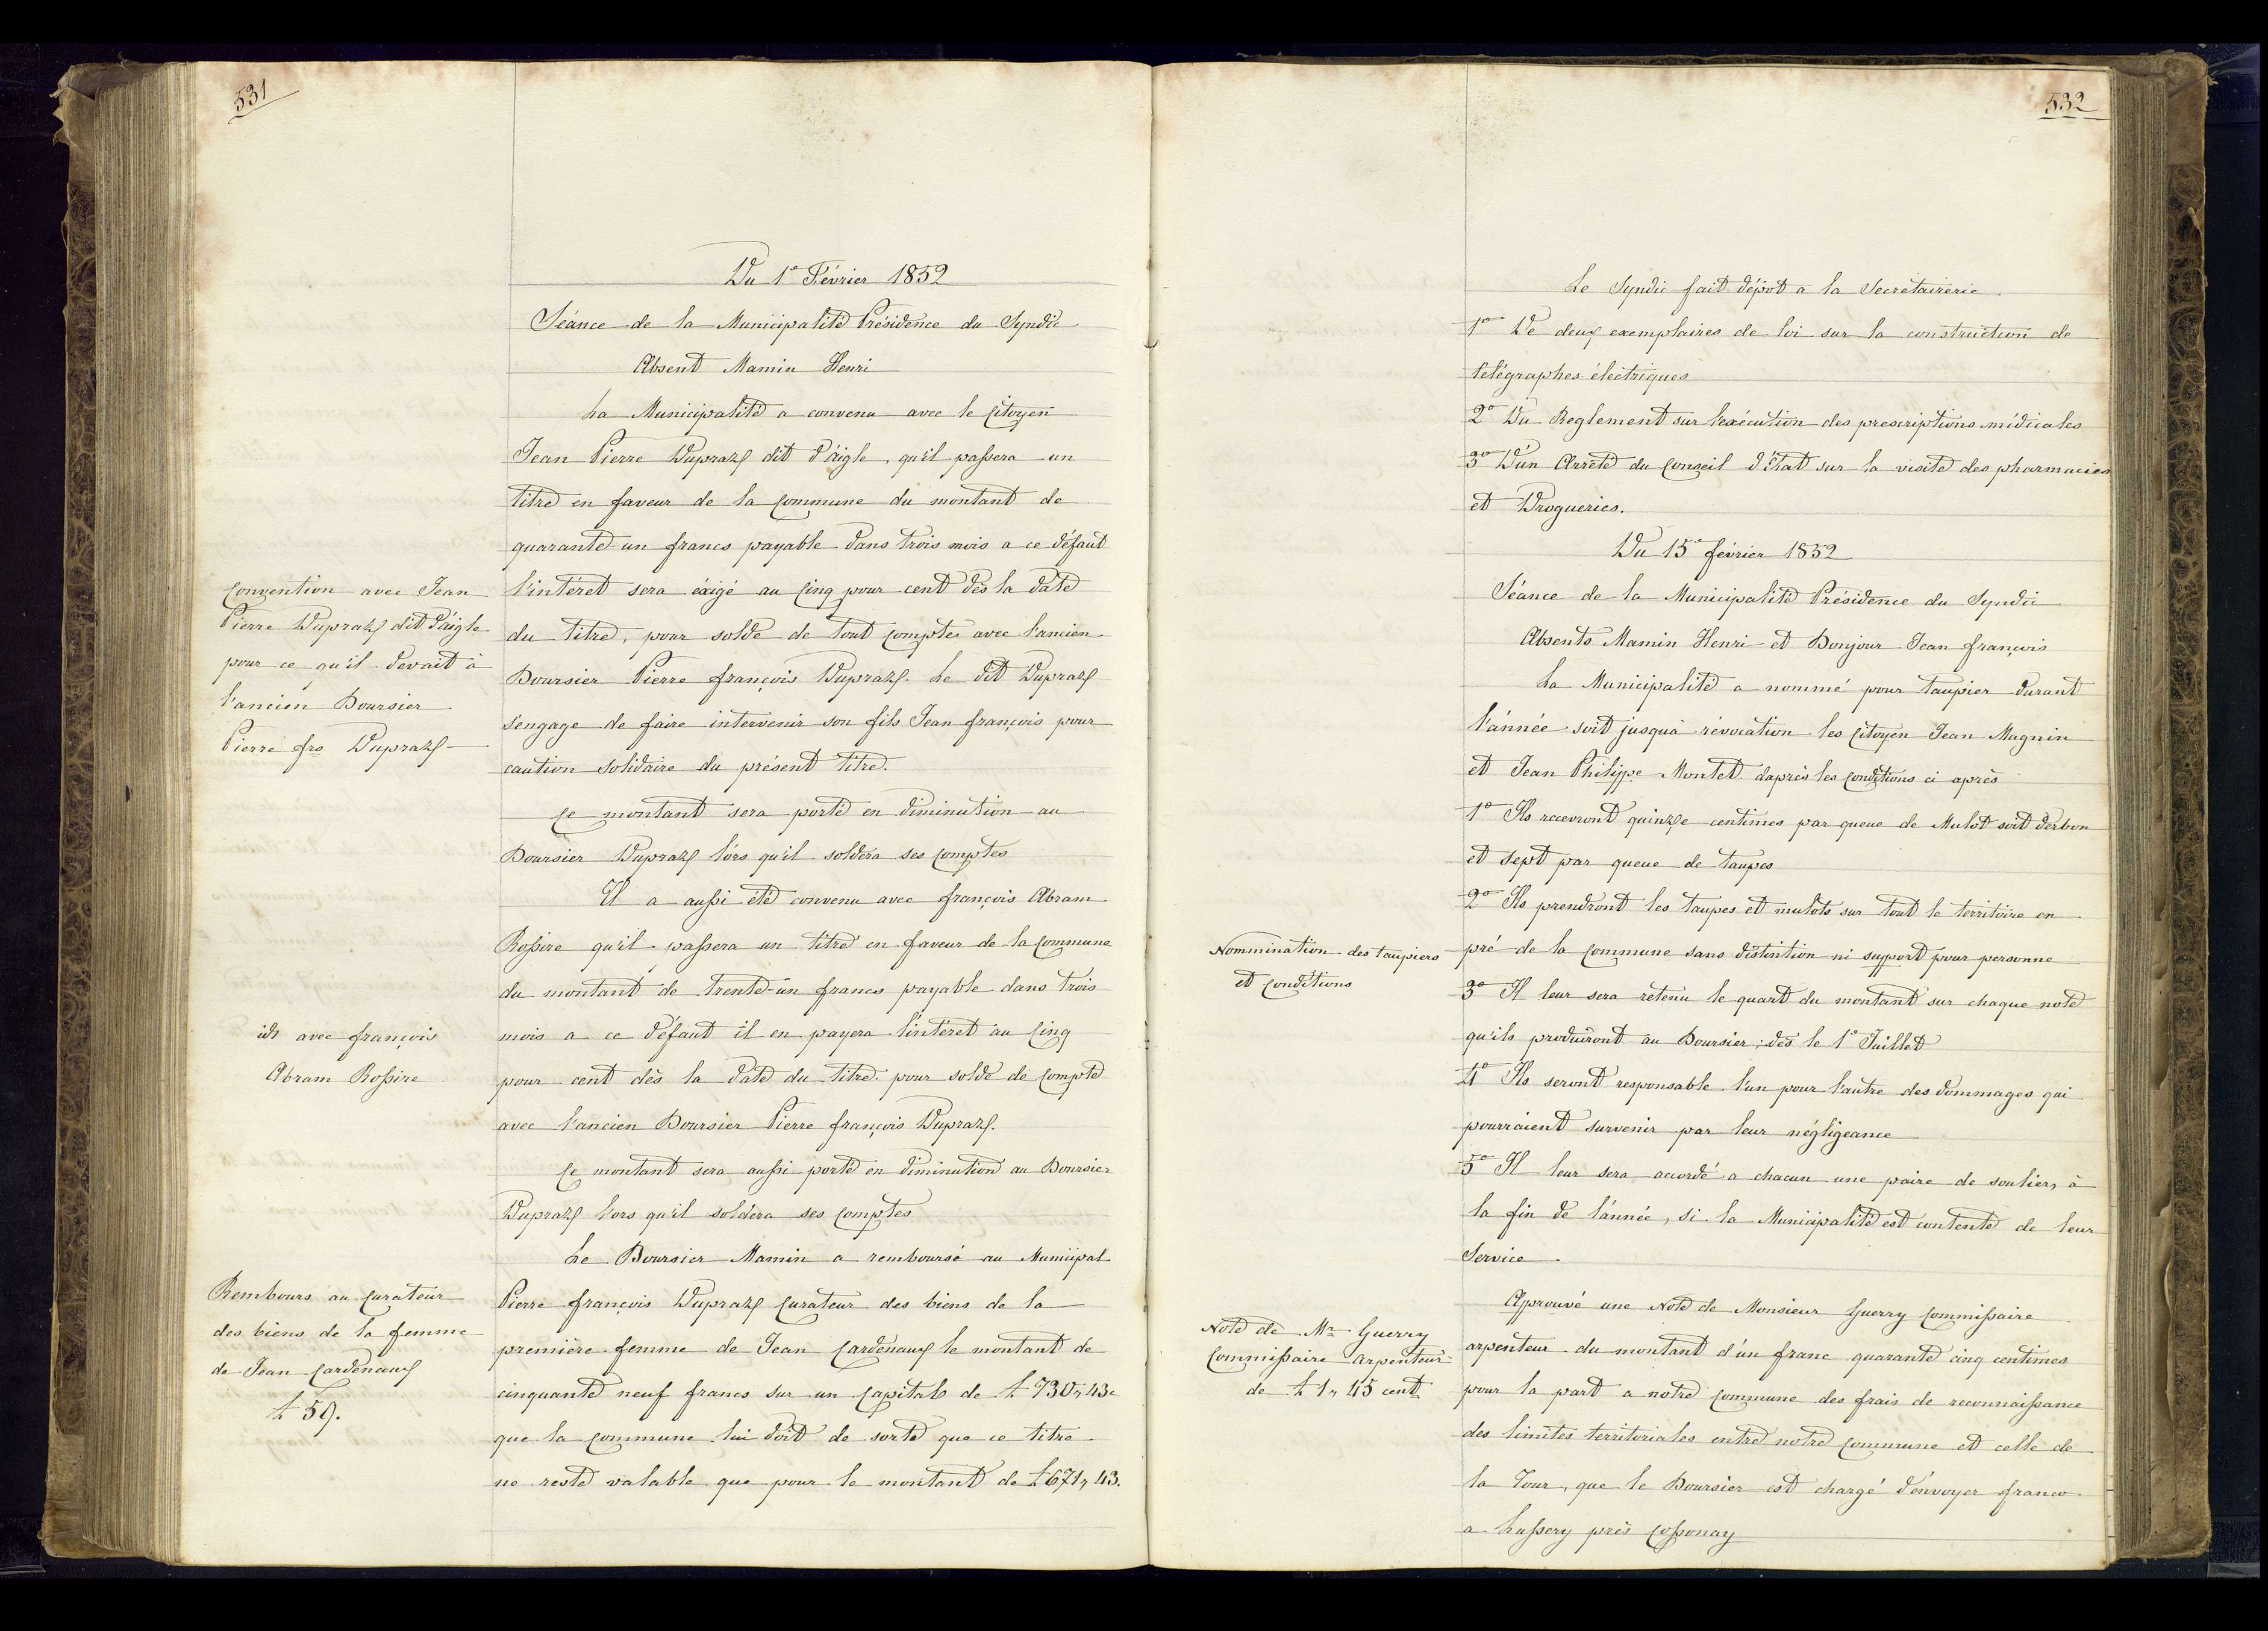 531
Du 1° Février 1852
Séance de la Municipalité Présidence du Syndic
Absent Mamin Henri
La Municipalité a convenu avec le Citoyen
Jean Pierre Dupraz dit d'aigle, qu'il passera un
titre en faveur de la Commune du montant de
quarante-un francs payable dans trois mois a ce défaut
l'intéret sera éxigé au Cinq pour cent dès la date
du titre, pour solde de tout comptes avec l'ancien
Boursier Pierre françois Dupraz. Le dit Dupraz
s'engage de faire intervenir son fils Jean françois pour
caution solidaire du présent titre.
Ce montant sera porté en diminution au
Boursier Dupraz lors qu'il soldera ses Comptes
Il a aussi été convenu avec françois Abram
Rossire qu'il passera un titre en faveur de la Commune
du montant de trente-un francs payable dans trois
mois a ce défaut il en payera l'intéret au Cinq
pour cent dès la date du titre pour solde de Compte
avec l'ancien Boursier Pierre françois Dupraz.
Ce montant sera aussi porté en diminution au Boursier
Dupraz lors qu'il soldera ses Comptes
Le Boursier Mamin a remboursé au Municipal
Pierre françois Dupraz Curateur des biens de la
première femme de Jean Cardenaux le montant de
cinquante neuf francs sur un Capital de L 730,,43c
que la Commune lui doit de sorte que ce titre
ne reste valable que pour le montant de L 671,,43.
Convention avec Jean
Pierre Dupraz dit d'aigle
pour ce qu'il devait à
l'ancien Boursier
Pierre frs Dupraz
id avec françois
Abram Rossire
Rembours au Curateur
des biens de la femme
de Jean Cardenaux
L 59.
532
Le Syndic fait dépot a la Secrétairerie
1° De deux exemplaires de loi sur la construction de
télégraphes électriques
2° Du Reglement sur l'exécution des prescriptions médicales
3° D'un Arrêté du Conseil d'Etat sur la visite des pharmacies
et Drogueries.
Du 15° février 1852
Séance de la Municipalité Présidence du Syndic
Absents Mamin Henri et Bonjour Jean françois
La Municipalité a nommé pour taupier durant
l'année soit jusqua révocation les Citoyen Jean Magnin
et Jean Philippe Montet daprès les Conditions ci après
1° Ils recevront quinze centimes par queue de Mulot soit derbon
et sept par queue de taupes
2° Ils prendront les taupes et mulots sur tout le territoire en
pré de la Commune sans distintion ni support pour personne
3° Il leur sera retenu le quart du montant sur chaque note
qu'ils produiront au Boursier; dès le 1° Juillet
4° Ils seront responsable l'un pour l'autre des dommages qui
pourraient survenir par leur négligeance
5° Il leur sera acordé a chacun une paire de souliers, à
la fin de l'année, si la Municipalité est contente de leur
Service
Approuvé une Note de Monsieur Guerry Commissaire
arpenteur du montant d'un franc quarante cinq centimes
pour la part a notre Commune des frais de reconnaissance
des limites territoriales entre notre Commune et celle de
la Tour, que le Boursier est chargé d'envoyer franco
a Lussery près Cossonay
Nommination des taupiers
et Conditions
Note de Mr Guerry
Commissaire Arpenteur
de L 1,, 45 cent